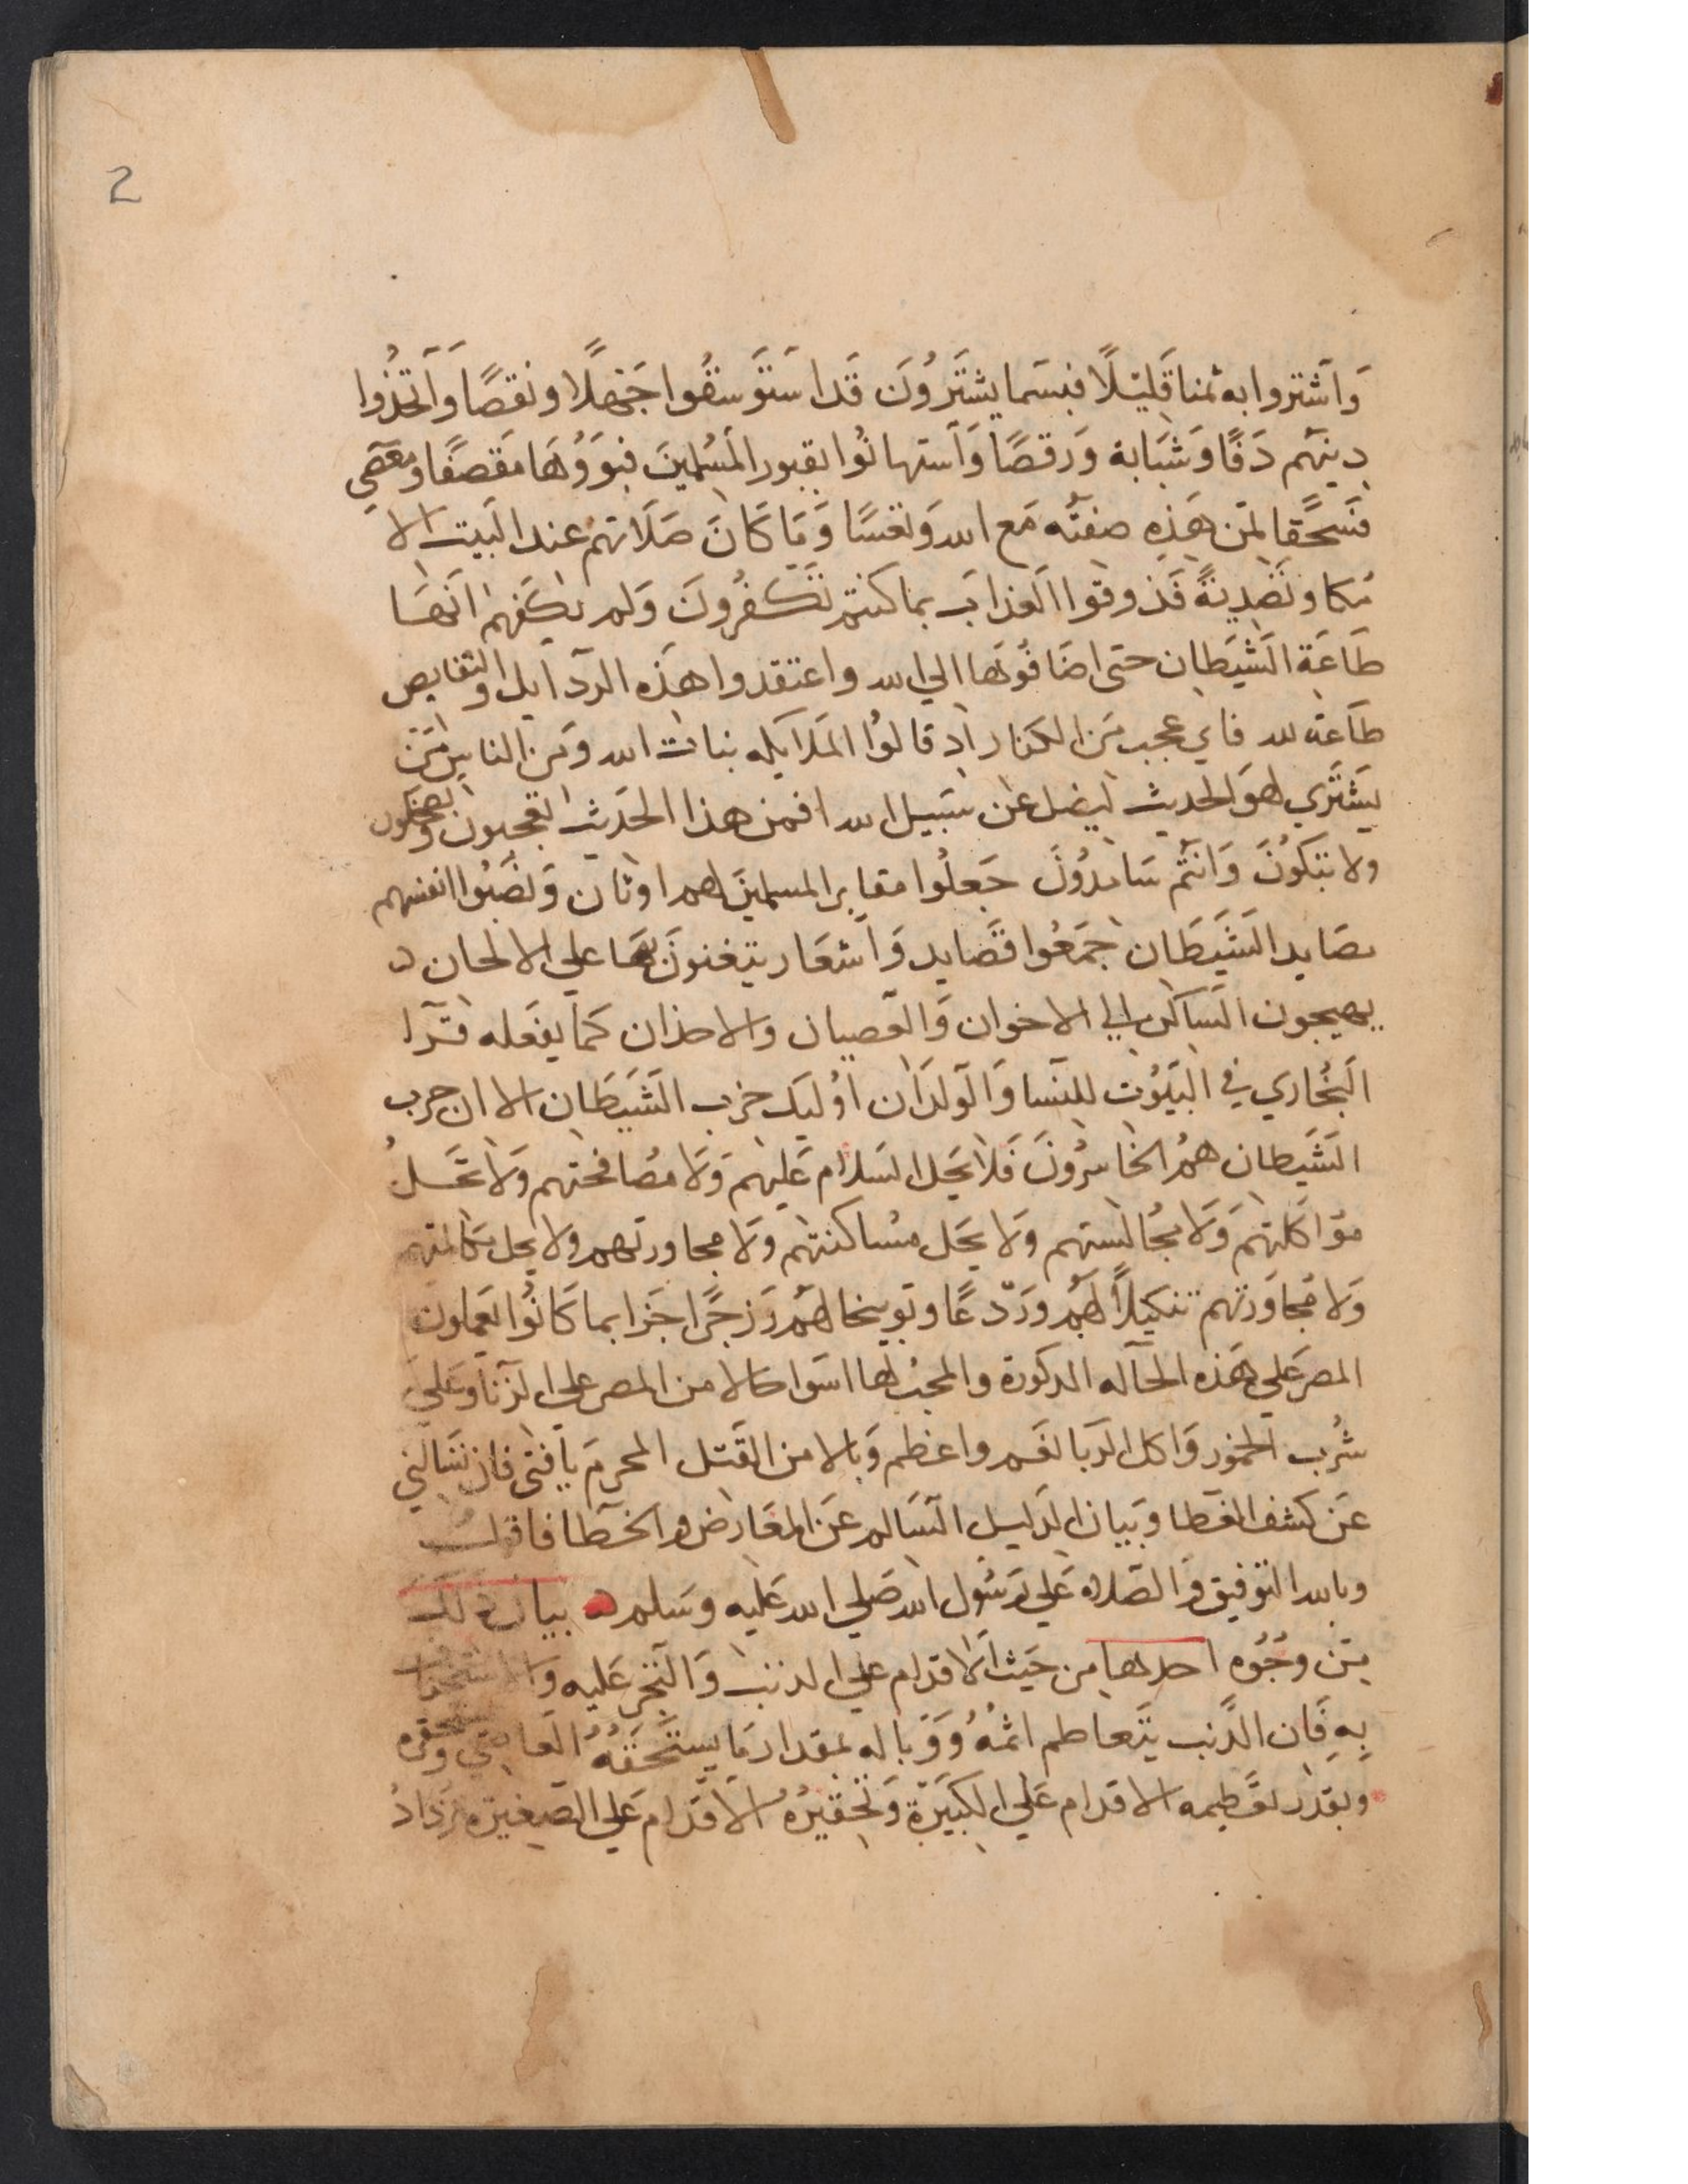 2
وَاشتروا به ثمنا قَليْلًا فبِسَما يشتَرُونَ قَد استَوسَقُوا جَهْلًا ونقصًا وَاتخذُوا
دِينهم دَفًا وَشبَابة وَرقصًا وَاستهانُوا بقبور المسُلمينَ فبَوؤُهَا مَقصَفًا ومعصي
فسَحَقا لمَن هَذِه صفتُه مَع الله وَتعسًا وَمَا كَانَ صَلَاتهم عند البَيت الا
مُكا وتَصْدِيَةً فَذوقوا العَذابَ بما كنتم تَكفُرونَ وَلم يكَفهم انهَا
طَاعَة الشيَطان حتى اضَافوُهَا الي الله واعتقدوا هذه الردايل والنقايص
طَاعَة لله فاي عجب مَن الكفار اد قالوُا المَلايكه بنات الله وَمن الناس مَن
يَشتَري لهوَ الحديث ليضل عَن سَبيل الله افمن هذا الحَديث تعجبون وتضحكون
ولا تبكوُنَ وَانتُم سَامدُونَ جَعلُوا مقابر المسلمينَ لهم اوثان وَنصَبُوا انفسهم
مصَايد الشَيَطَان جمَعُوا قصَايد وَاشعَار يتغنونَ بهَا علي الالحان
يهيجون السَاكن الي الاخوان وَالعصيان والاحزان كمَا يفعَله قرا
البُخاري في البيَوُت للنسَا وَالولدَان اوُليك حزب الشَيَطَان الا ان حزب
الشَيطان همُ الخاسرُونَ فَلا يَحل السَلام عَليهم وَلا مصَافحتهم وَلا تحَل
مؤاكلَتهم وَلا مجُالستهم وَلا يحَل مسُاكنتهم وَلا مجاورتهم ولا يحل مكالمتهم
وَلا مجَاوَرتهم تنكيلًا لهَم ورَدّعًا وتوبيخا لهُم وَزجرًا جَزا بما كَانوُا يَعملون
المصر عَلي هَذه الحَاله المدكورة والمحبُ لها اسَوا حالا من المصر علي الزنا وَعَلي
شُرب الخمور وَاكل الربا نعَم واعظم وَبالا من القَتل المحرم يَا فتى فان تسَالني
عَن كشف الغطا وَبيَان الدَليل السَالم عَن المعَارض والخطا فاقول
وبالله التوفيق وَالصَلاه عَلي رَسُول الله صَلي الله عَليه وسَلم بيان ذلك
مِن وجُوُه احدها مِن حَيث الاقدام علي الدنب وَالتجر عَليه وَالاستخفاف
بِهِ فَان الدَنب يتَعاظم اثمُهُ وَوَبَاله بمقدار مَا يستَحَقهُ العَاصي وَيحقره
وَبقَدر تعَظيمه الاقدام عَلي الكَبيَرة وَتحقيرُه الاقدام عَلي الصَغيرَة يَزدَادُ